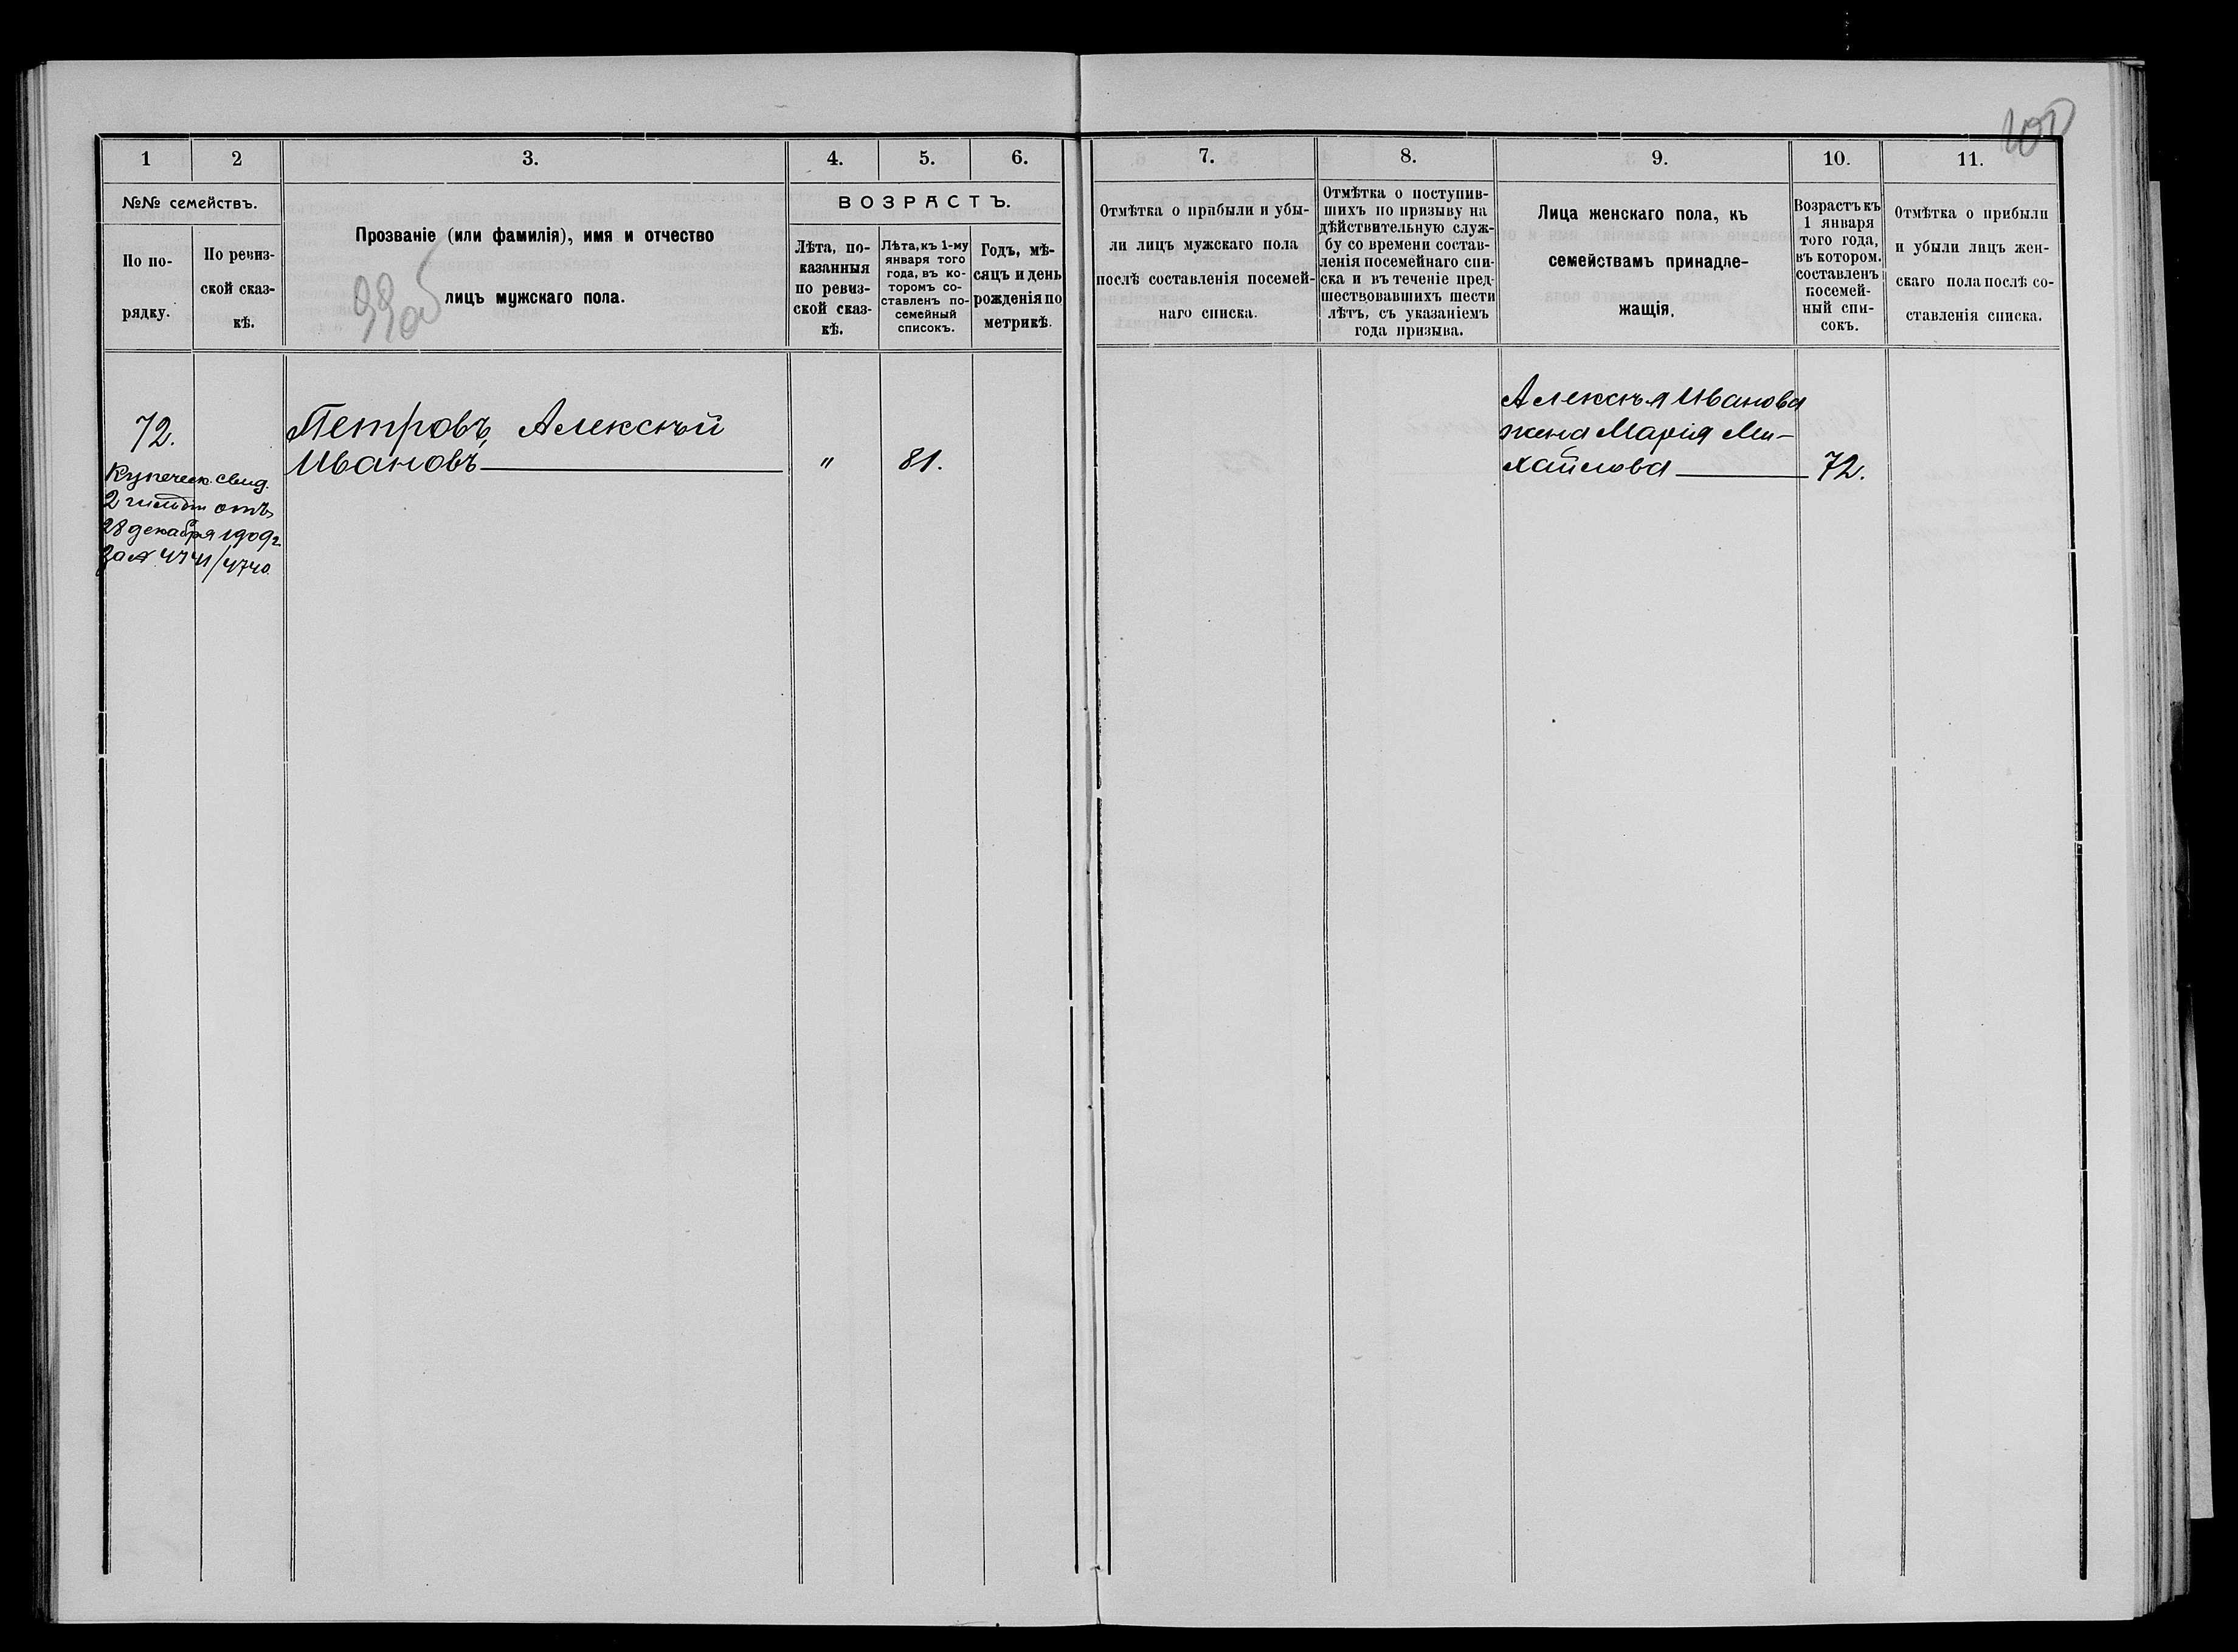 100
1
2
3.
4.
5.
6.
№№ семействъ.
По по-
рядку.
По ревиз-
ской сказ-
кѣ.
Прозваніе (или фамилія), имя и отчество
лицъ мужскаго пола.
99об
ВОЗРАСТЪ.
Лѣта, по-
казанныя
по ревиз-
ской сказ-
кѣ.
Лѣта, къ 1-му
января того
года, въ ко-
торомъ со-
ставленъ по-
семейный
списокъ.
Годъ, мѣ-
сяцъ и день
рожденія по
метрикѣ.
72.
Купеческ. свид.
2 гильдіи отъ
28 декабря 1909 г.
за № 4741/4740.
Петровъ, Алексѣй
Ивановъ
"
81.
7.
8.
9.
10.
11.
Отмѣтка о прибыли и убы-
ли лицъ мужскаго пола
послѣ составленія посемей-
наго списка.
Отмѣтка о поступив-
шихъ по призыву на
дѣйствительную служ-
бу со времени состав-
ленія посемейнаго спи-
ска и въ теченіе пред-
шествовавшихъ шести
лѣтъ, съ указаніемъ
года призыва.
Лица женскаго пола, къ
семействамъ принадле-
жащія.
Возрастъ къ
1 января
того года,
въ котором.
составленъ
посемей-
ный спи-
сокъ.
Отмѣтка о прибыли
и убыли лицъ жен-
скаго пола послѣ со-
ставленія списка.
Алексѣя Иванова
жена Марія Ми-
хайлова
72.